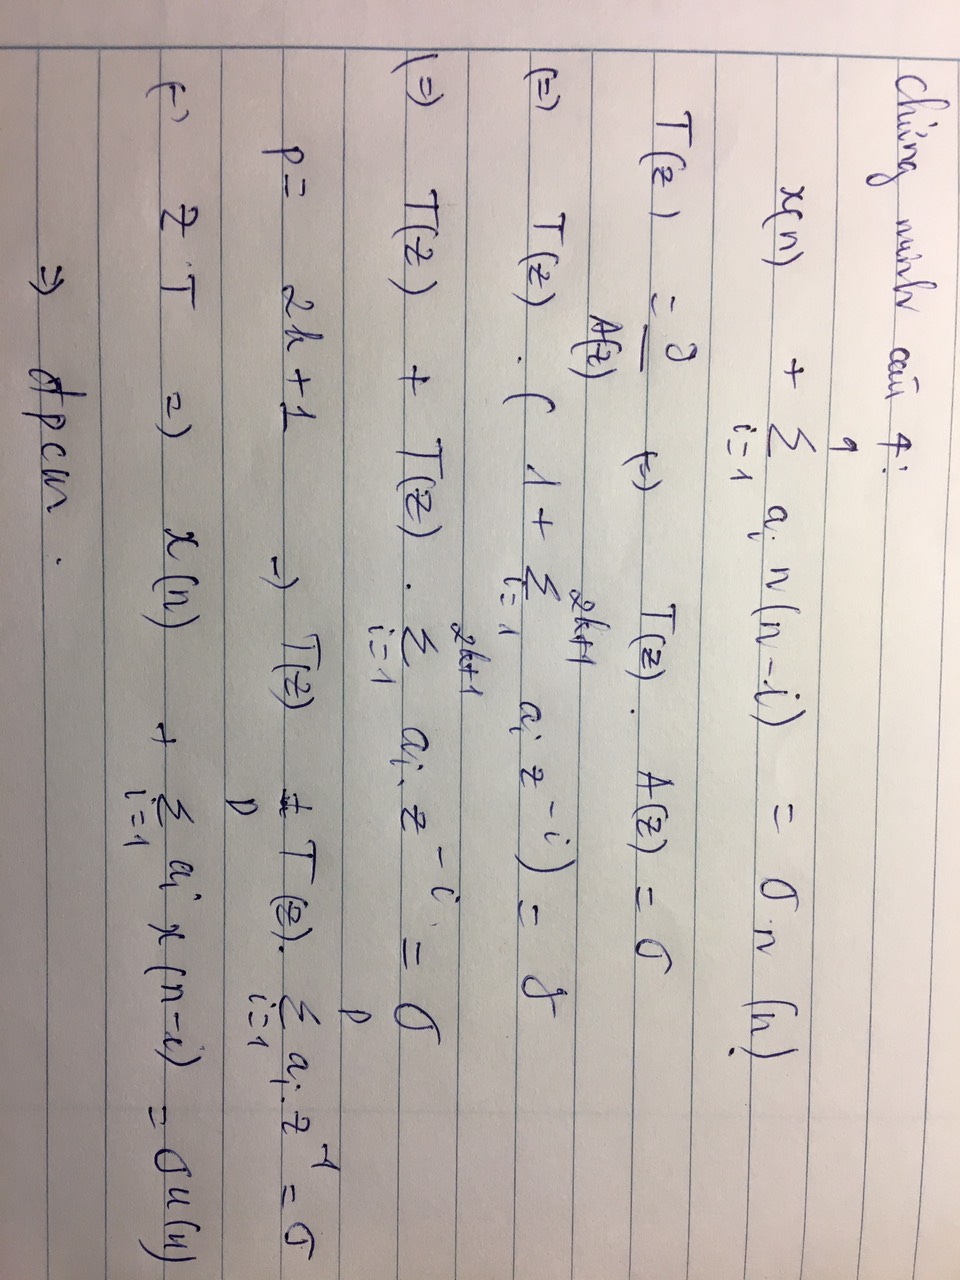 Chứng minh câu 4:
x(n) + \sum_{i=1}^{q} a_i n(n-i) = σ n (n)
T(z) = \frac{σ}{A(z)} (=) T(z) . A(z) = σ
(=) T(z) . ( 1 + \sum_{i=1}^{2k+1} a_i z^{-i} ) = σ
(=) T(z) + T(z) . \sum_{i=1}^{2k+1} a_i . z^{-i} = σ
p = 2k+1 → T(z) + T(z) . \sum_{i=1}^{p} a_i . z^{-1} = σ
z T => x(n) + \sum_{i=1}^{p} a_i x(n-i) = σu(n)
=> đpcm .